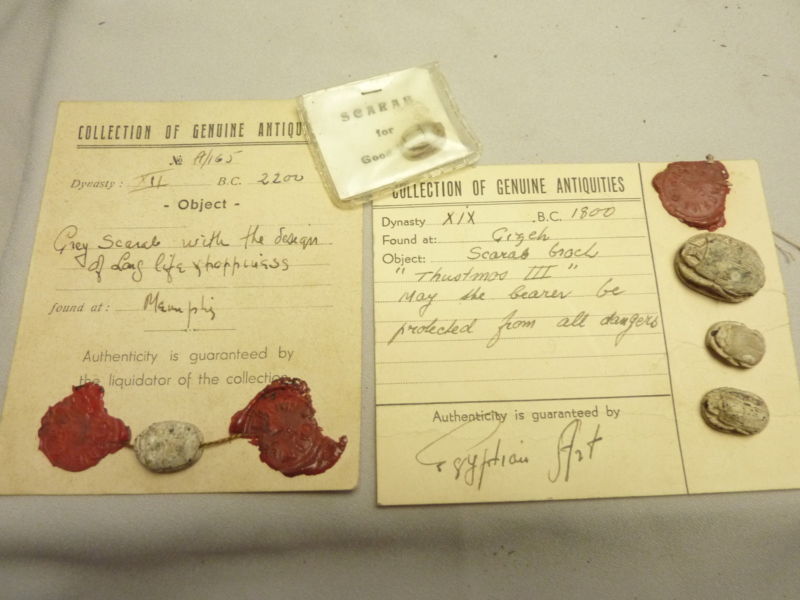 COLLECTION OF GENUINE ANTIQU
№ A/165
Dynasty: XII B.C. 2200
- Object -
Grey Scarab with the design
of Long life & happiness
found at: Memphis
Authenticity is guaranteed by
the liquidator of the collection
SCARAB
for
Goo
COLLECTION OF GENUINE ANTIQUITIES
Dynasty XIX .B.C. 1800
Found at: Gizeh
Object: Scarab
"Thustmos III"
May the bearer be
protected from all dangers
Authenticity is guaranteed by
Egyptian Art